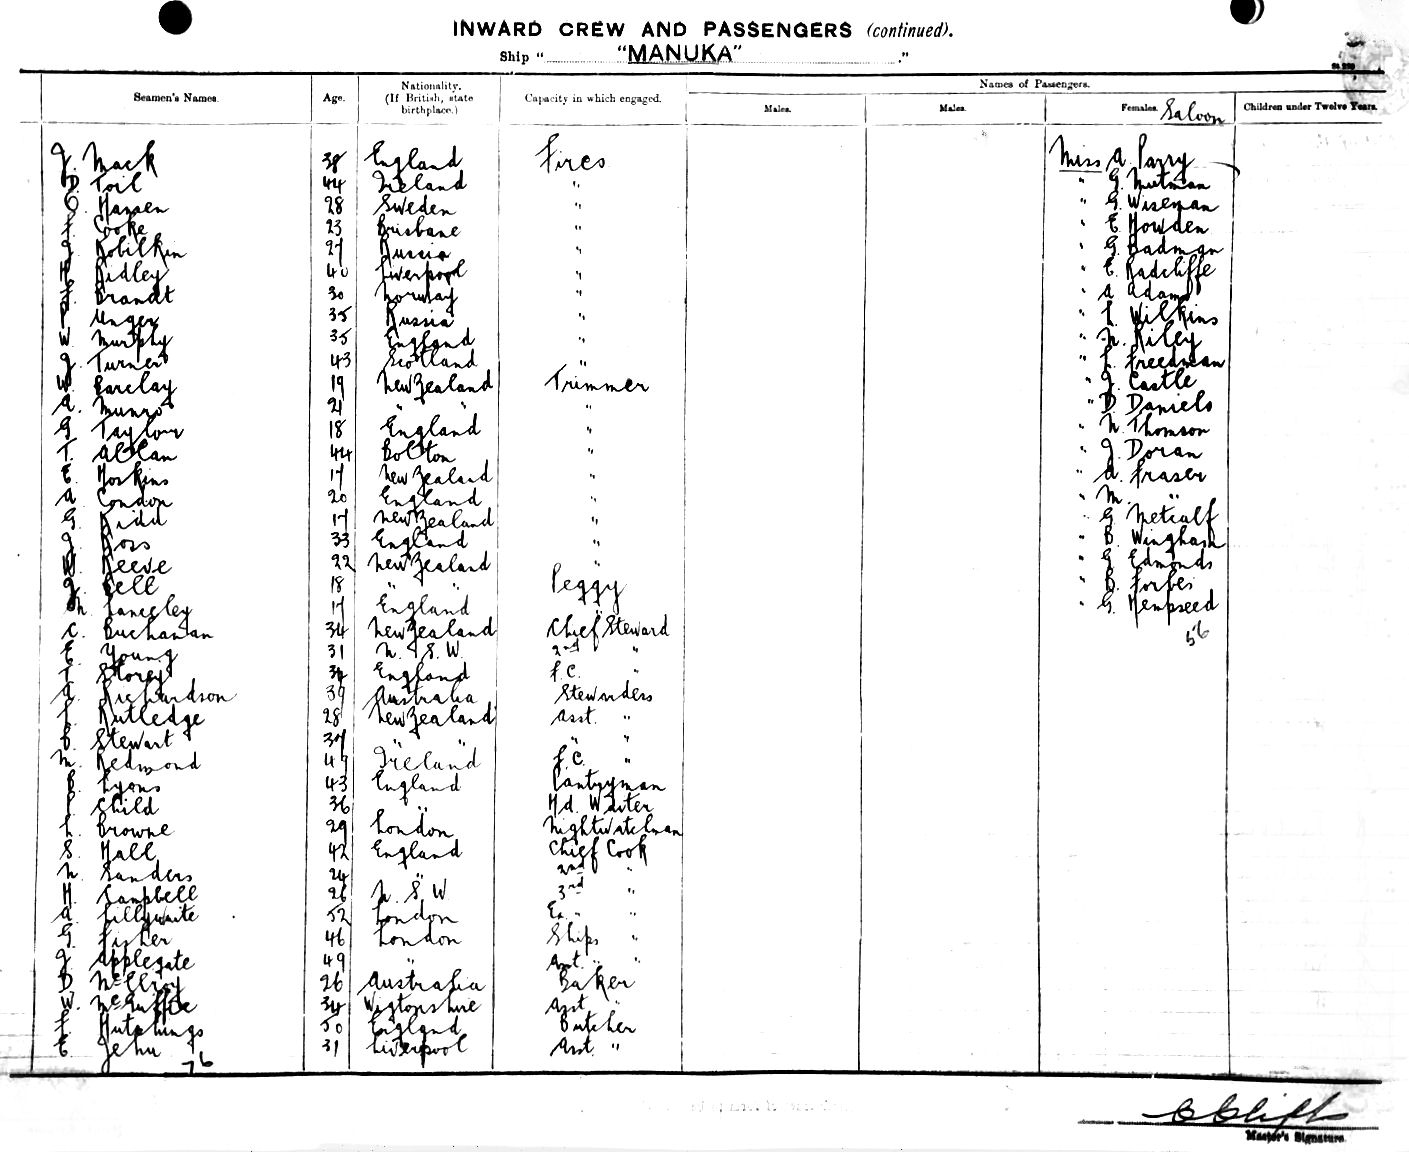 INWARD CREW AND PASSENGERS (continued).
Ship "MANUKA"."
Seamen's Names. Age. Nationality. (If British, state birthplace.) Capacity in which engaged. Names of Passengers.
Males. Males. Females. Saloon Children under Twelve Years.
J. Mack 38 England Fires Miss A. Parry
D. Toil 44 Ireland " " G. Mutman
O. Hansen 28 Sweden " " G. Wiseman
F. Cooke 23 Brisbane " " E. Howden
J. Kobilkin 27 Russia " " G. Badman
H. Ridley 40 Liverpool " " E. Radcliffe
Brandt 30 Norway " " A. Adams
P. Unger 35 Russia " " L. Wilkins
W. Murphy 35 England " " N. Riley
J. Turner 43 Scotland " " L. Freedman
W. Barclay 19 New Zealand Trimmer " J. Castle
A. Munro 21 " " " " D. Daniels
G. Taylour 18 England " " N. Thomson
T. Allan 44 Bolton " " J. Doran
E. Hoskins 17 New Zealand " " A. Fraser
A. Condon 20 England " " M. "
G. Kidd 17 New Zealand " " G. Metcalf
J. Ross 33 England " " B. Wingham
W. Reeve 22 New Zealand " " G. Edmonds
J. Bell 18 " " Peggy " B. Forbes
M. Langley 17 England " " G. Hempseed
C. Buchanan 34 New Zealand Chief Steward 56
E. Young 31 N. S. W. 2nd "
T. Storey England F.C. "
A. Richardson 39 Australia Stewardess
Rutledge 28 New Zealand Asst. "
B. Stewart " " " "
M. Redmond Ireland F.C. "
B. Lyons 43 England Pantryman
Child 36 " Hd. Waiter
L. Browne 29 London Nightwatchman
S. Hall 42 England Chief Cook
N. Sanders 24 " 2nd "
H. Campbell 26 N. S. W. 3rd "
A. Lillywhite 52 London Ex. " "
G. Fisher 46 London Ships "
J. Applegate 49 " Asst. " "
D. McElroy 26 Australia Baker
W. McGuffie 34 Wigtonshire Asst "
F. Hutchings 50 England Butcher
E. Jehu 31 Liverpool Asst. "
76
Master's Signature.